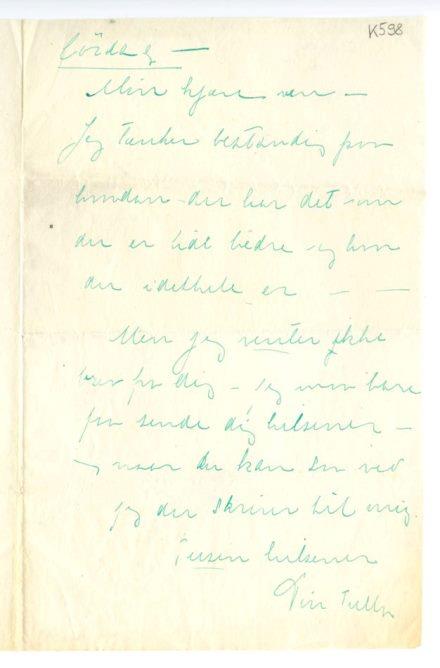 K598
Lördag —
Min kjære ven —
Jeg tænker bestandig paa
hvordan du har det – om
du er lidt bedre – og hvor
du idethele er — —
Men jeg venter ikke
brev fra dig – Jeg maa bare
faa sende dig hilsener —
og naar du kan saa ved
jeg du skriver til mig.
Tusen hilsener
Din Tulla